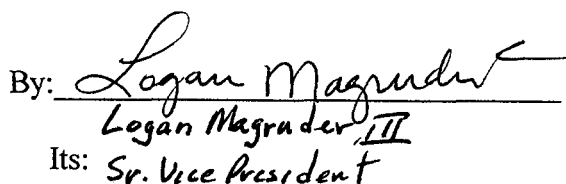 By: Logan Magruder
Logan Magruder, III
Its: Sr. Vice President